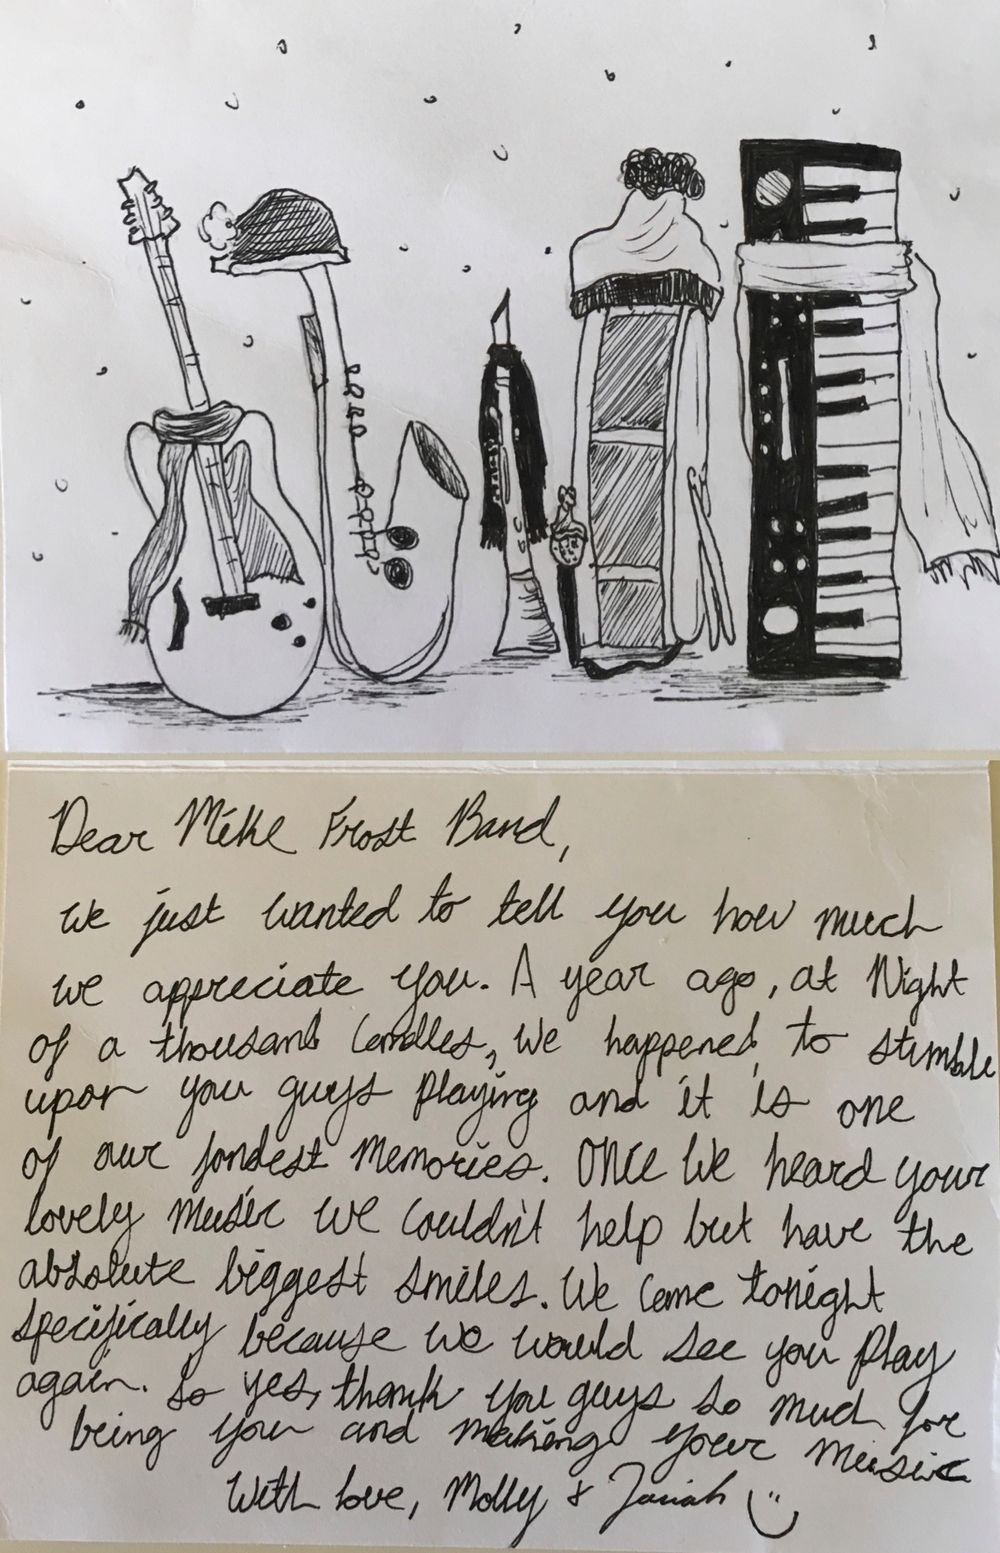 Dear Mike Frost Band,
We just wanted to tell you how much
we appreciate you. A year ago, at Night
of a thousand Candles, we happened to stumble
upon you guys playing and it is one
of our fondest memories. Once we heard your
lovely music we couldn't help but have the
absolute biggest smiles. We came tonight
specifically because we would see you play
again. So yes, thank you guys so much for
being you and making your music
With love, Molly &